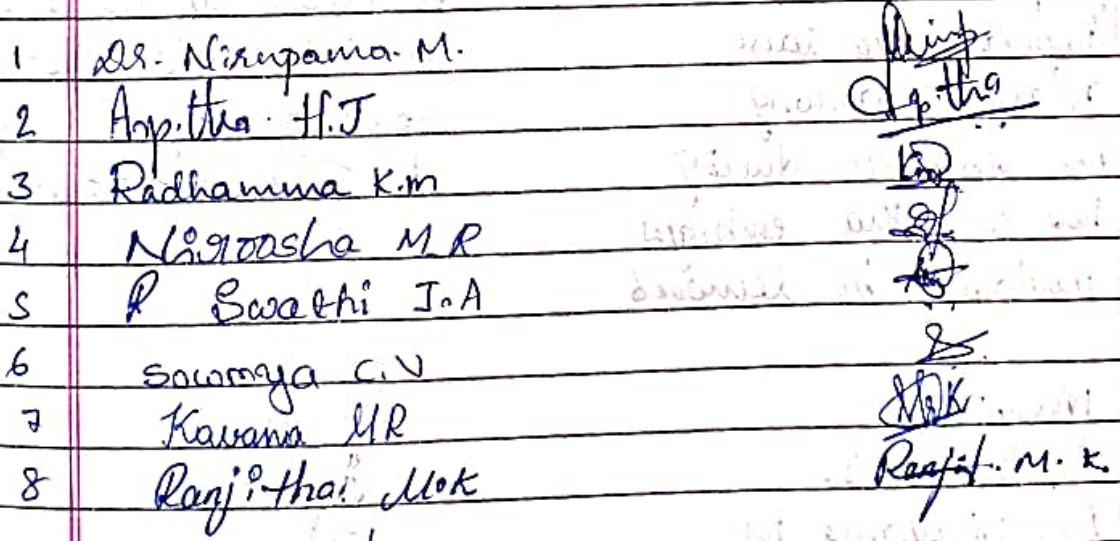 1 Dr. Nirupama. M.
2 Arpitha. H.J Arpitha
3 Radhamma K.m
4 Niroosha M R
5 R Swathi J.A
6 sowmya C.V
7 Kavana MR
8 Ranjitha M.K Ranjit. M. K.